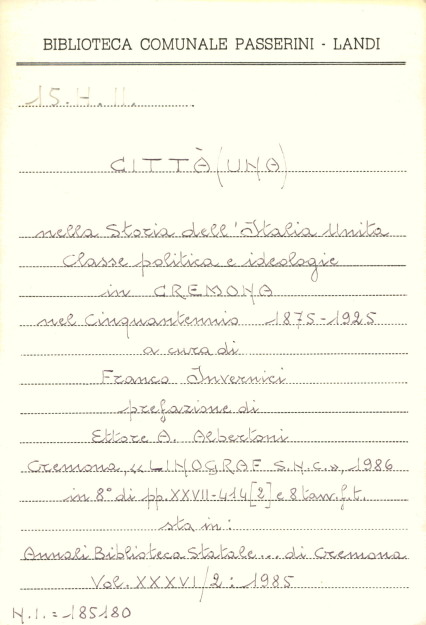 BIBLIOTECA COMUNALE PASSERINI - LANDI
15.H.11.
CITTÀ (UNA)
nella Storia dell'Italia Unita
Classe politica e ideologie
in CREMONA
nel Cinquantennio 1875-1925
a cura di
Franco Invernici
prefazione di
Ettore A. Albertoni
Cremona, «LINOGRAF S.N.C.», 1986
in 8° di pp. XXVII-414[2] e 8 tavv.f.t.
sta in:
Annali Biblioteca Statale... di Cremona
Vol. XXXVI/2: 1985
N.I. = 185180